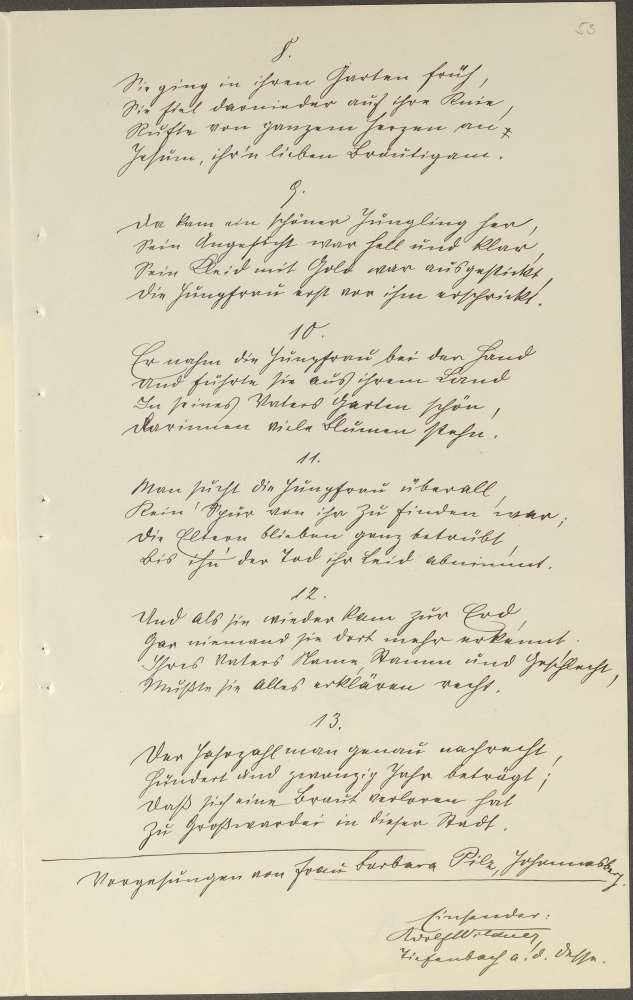 53
8.
Sie ging in ihren Garten früh,
Sie fiel darnieder auf ihre Knie,
Rufte von ganzem Herzen an
Jesum, ihr'n lieben Bräutigam.
9.
Da kam ein schöner Jüngling her,
Sein Angesicht war hell und klar,
Sein Kleid mit Gold war ausgestickt,
Die Jungfrau erst vor ihm erschrickt.
10.
Er nahm die Jungfrau bei der Hand
Und führte sie aus ihrem Land
In seines Vaters Garten schön,
Darinnen viele Blumen stehn.
11.
Man sucht die Jungfrau überall,
Kein' Spur von ihr zu finden war;
Die Eltern blieben ganz betrübt,
Bis ihn' der Tod ihr Leid abnimmt.
12.
Und als sie wieder kam zur Erd,
Gar niemand sie dort mehr erkennt.
Ihres Vaters Name, Stamm und Geschlecht,
Mußte sie Alles erklären recht.
13.
Der Jahrzahl man genau nachrecht,
Hundert und zwanzig Jahr beträgt;
Daß sich eine Braut verloren hat
Zu Großwardei in dieser Stadt.
Vorgesungen von Frau Barbara Pilz, Johannesberg.
Einsender:
Adolf Wildner
Tiefenbach a. d. Desse.